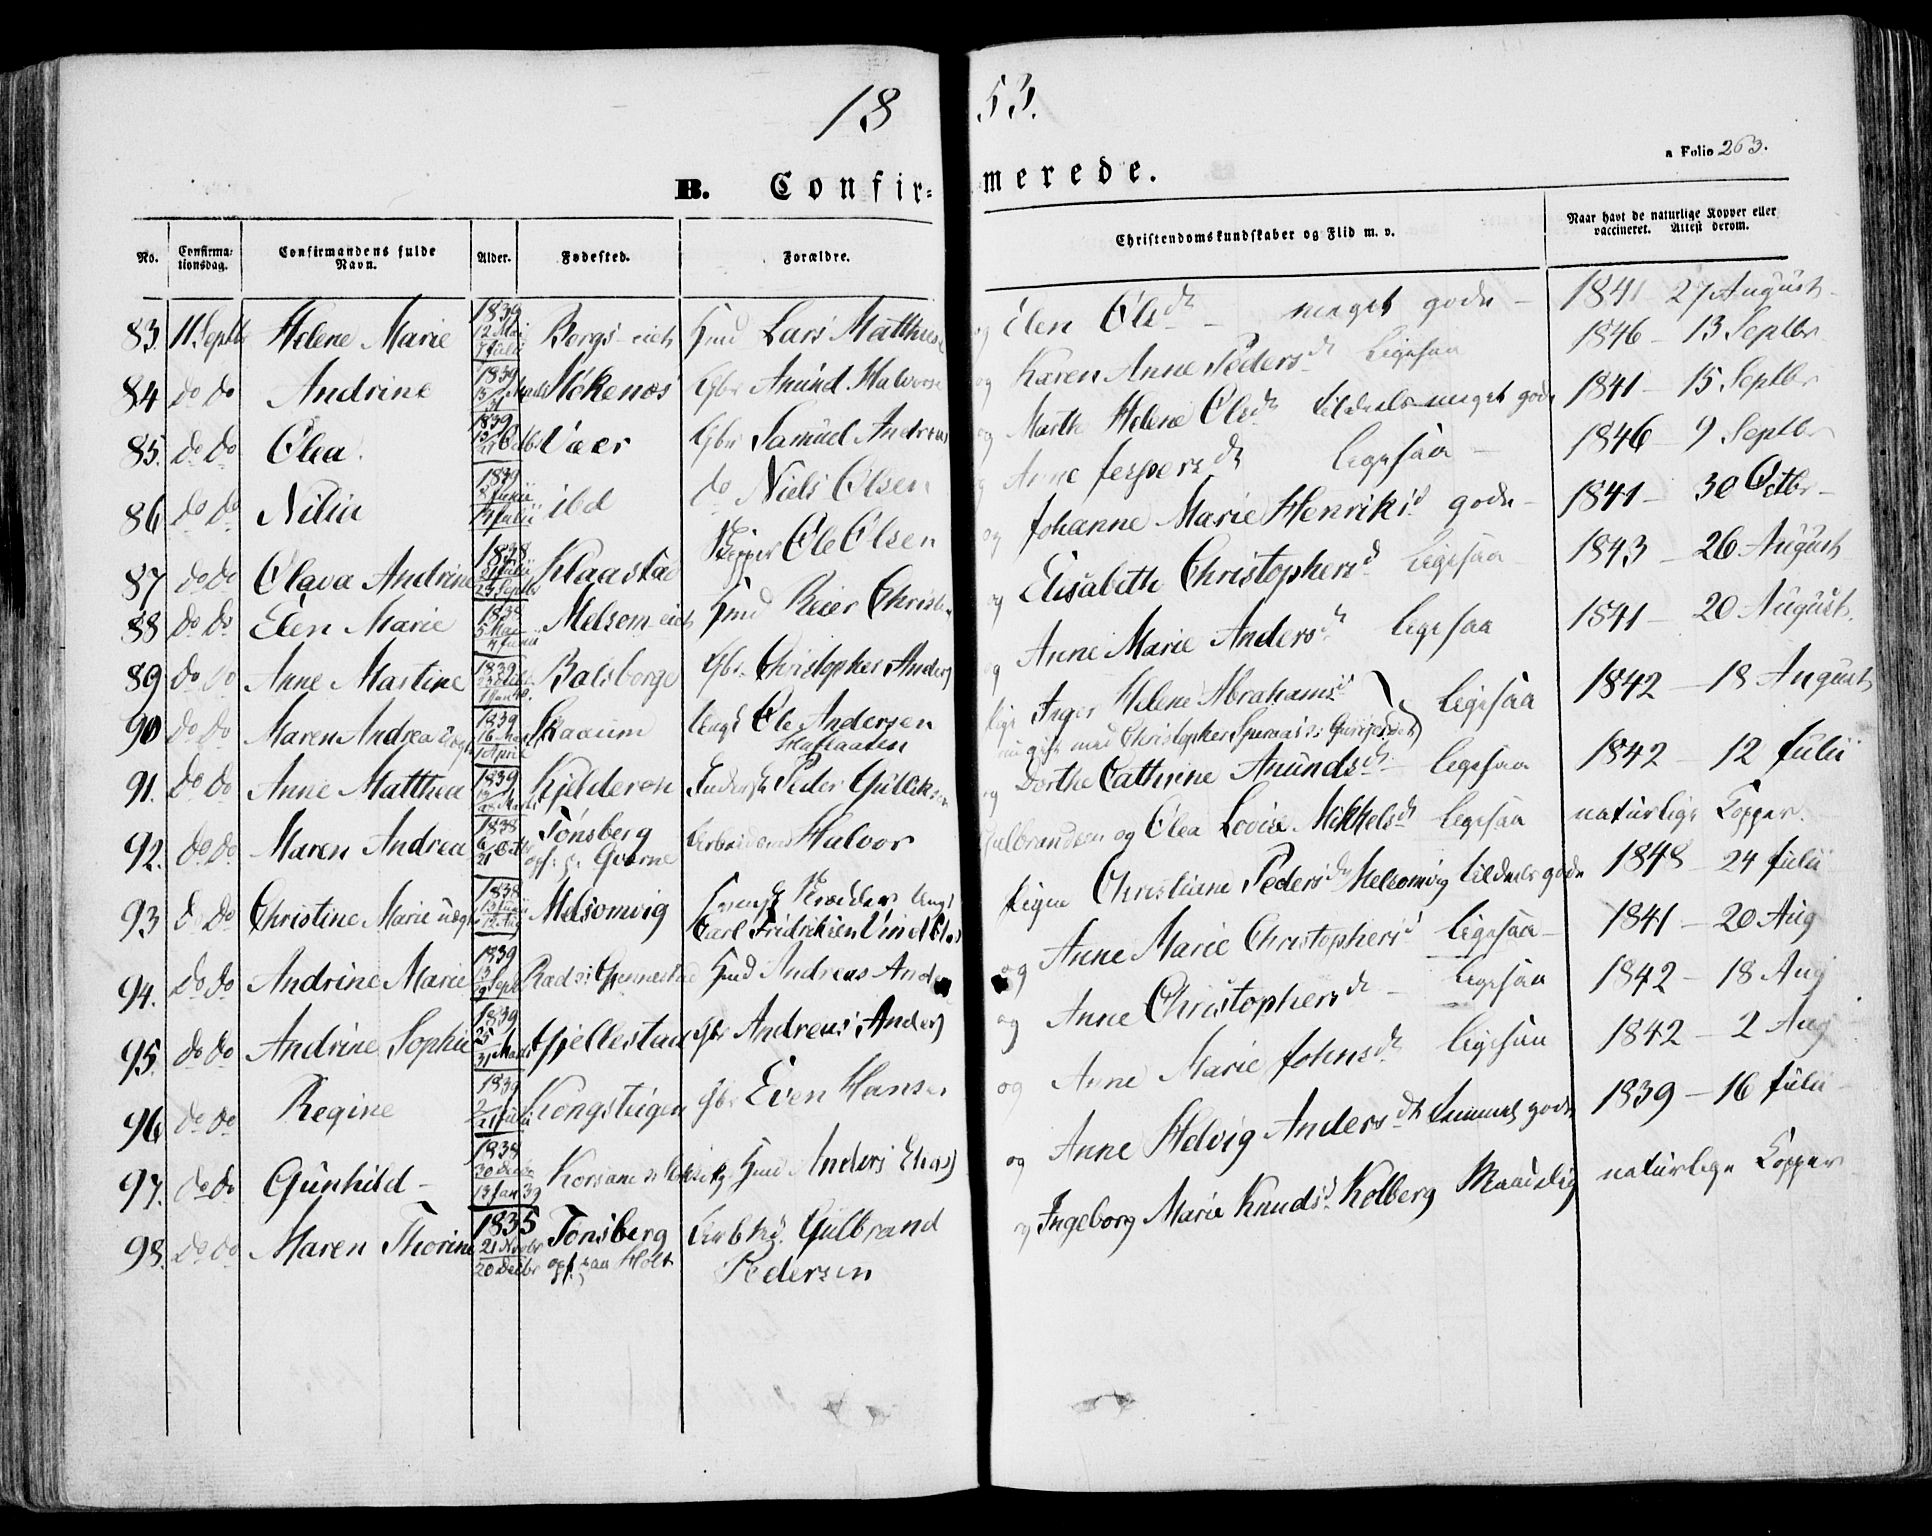 18 53.
a Folio 263.
B. Confir= merede.
No. Confirma- tionsdag. Confirmandens fulde Navn. Alder. Fødested. Forældre. Christendomskundskaber og Flid m. v. Naar havt de naturlige Kopper eller vaccineret. Attest derom.
83. 11 Septbr Helene Marie 1839 12 Mai 7 Juli Borgs-eie Hmd Lars Matthies og Elen Olsdt meget godt 1841 - 27 August
84 do do Andrine 1839 Støkenæs Gbr Amund Halvors og Karen Anne Pedersdt ligesaa 1846 - 13 Septbr
85. do do Olea 1839 Væer Gbr Samuel Andreas og Marthe Helene Olsdt tildeels meget godt 1841 - 15 Septbr
86 do do Nilia 1839 ibd do Niels Olsen og Anne Jespersdt ligesaa 1846 - 9 Septbr
87 do do Olava Andrine 1838 24 Septbr Klaastad Skipper Ole Olsen og Johanne Marie Henriksd godt 1841 - 30 Octbr
88 do do Elen Marie 1838 Melsom-eie Hmd Reier Christ og Elisabeth Christophersd ligesaa 1843 - 26 August
89 do do Anne Martine 1839 Basborge Gbr Christopher Anders og Anne Marie Andersdt ligesaa 1841 - 20 August
90 do do Maren Andrea uægte 1839 16 Marts 1 April Skaaum Ungk Ole Andersen og Inger Helene Abrahamsd ligesaa 1842 - 18 August
nu gift med Christopher
91. do do Anne Matthea 1839 Kjelderen Peder Gulliks og Dorthe Cathrine Amundsdt ligesaa 1842 - 12 Julii
92. do do Maren Andrea 1838 6 Tønsberg Arbeidsmd Halvor Gulbrandsen og Olea Lovise Mikkelsdt ligesaa naturlige Kopper
opf: p: Qværne
93 do do Christine Marie uægte 1838 Melsomvig Ungk Pigen Christiane Pedersdt Melsomvig tildeels godt 1848 - 24 Julii
Carl Fridriksen
94. do do Andrine Marie 1839 13 Septb Gjennestad Hmd Andreas Anders og Anne Marie Christophersd ligesaa 1841 - 20 Aug
95. do do Andrine Sophie 1839 25 31 Marts Gjellestad Gbr Andreas Anders og Anne Christophersdt ligesaa 1842 - 18 Aug
96 do do Regine 1839 Kongsteigen Gbr Even Hansen og Anne Marie Johnsdt ligesaa 1842 - 2 Aug
97. do do Gunhild 1838 30 Decbr 13 Jan 39 Hmd Anders Elias og Anne Helvig Andersdt temmel godt 1839 - 16 Julii
98. do do Maren Thorine 1835 21 Novbr 20 Decbr Tønsberg Gulbrand og Ingeborg Marie Knudsd Kolberg Maadelig naturlige Kopper
opf: paa Holt Pedersen